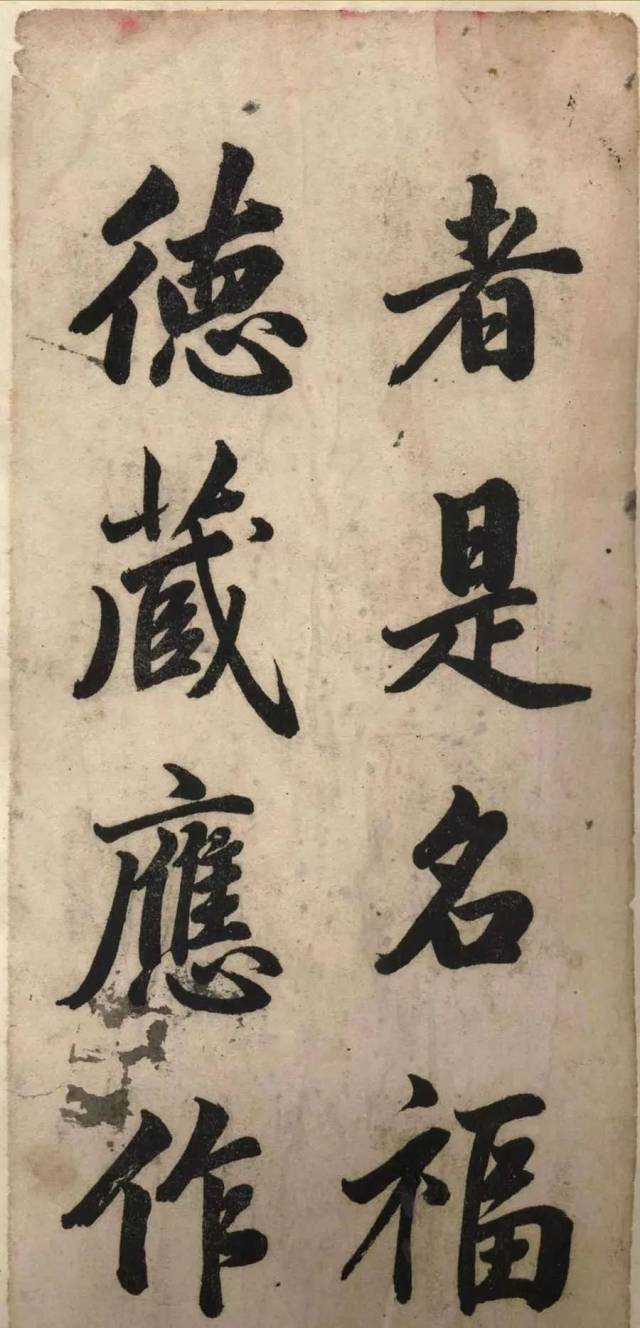 者是名福
德蔵應作